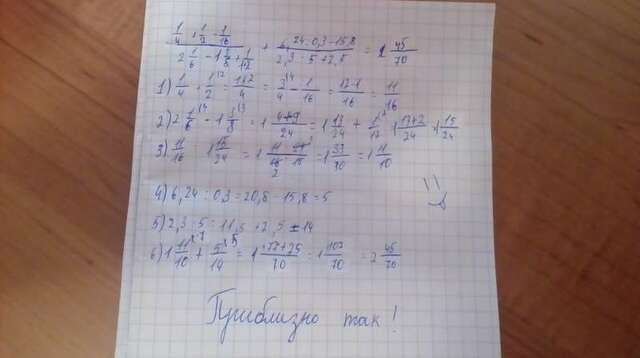 1/4 + 1/2 - 1/16 / 2 1/6 - 1 1/8 + 1/12 + 6,24 : 0,3 - 15,8 / 2,3 · 5 + 2,5 = 2 45/70
1) 1/4 + 1/2 = 1+2/4 = 3/4 - 1/16 = 12-1/16 = 11/16
2) 2 1/6 - 1 1/8 = 1 4+9/24 = 1 13/24 + 1/12 = 1 13+2/24 = 1 15/24
3) 11/16 1 15/24 = 1 = 1 33/30 = 1 11/10
4) 6,24 : 0,3 = 20,8 - 15,8 = 5
5) 2,3 · 5 = 11,5 + 2,5 = 14
6) 1 11/10 + 5/14 = 1 77+25/70 = 1 102/70 = 2 45/70
Приблизно так!